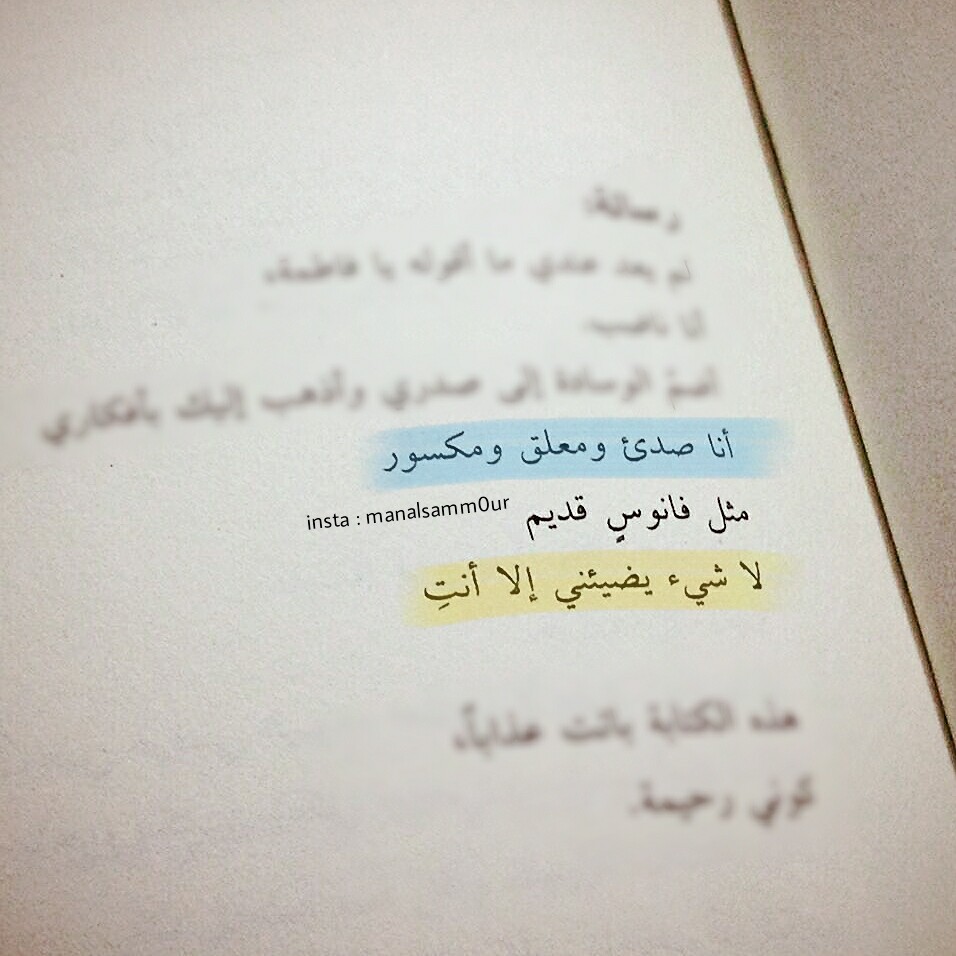 رسالة:
لم يعد عندي ما أقوله يا فاطمة،
أنا ناضب.
أضمّ الوسادة إلى صدري وأذهب إليك بأفكاري
أنا صدئ ومعلق ومكسور
مثل فانوسٍ قديم
insta : manalsamm0ur
لا شيء يضيئني إلا أنتِ
هذه الكتابة باتت عذاباً،
كوني رحيمة.